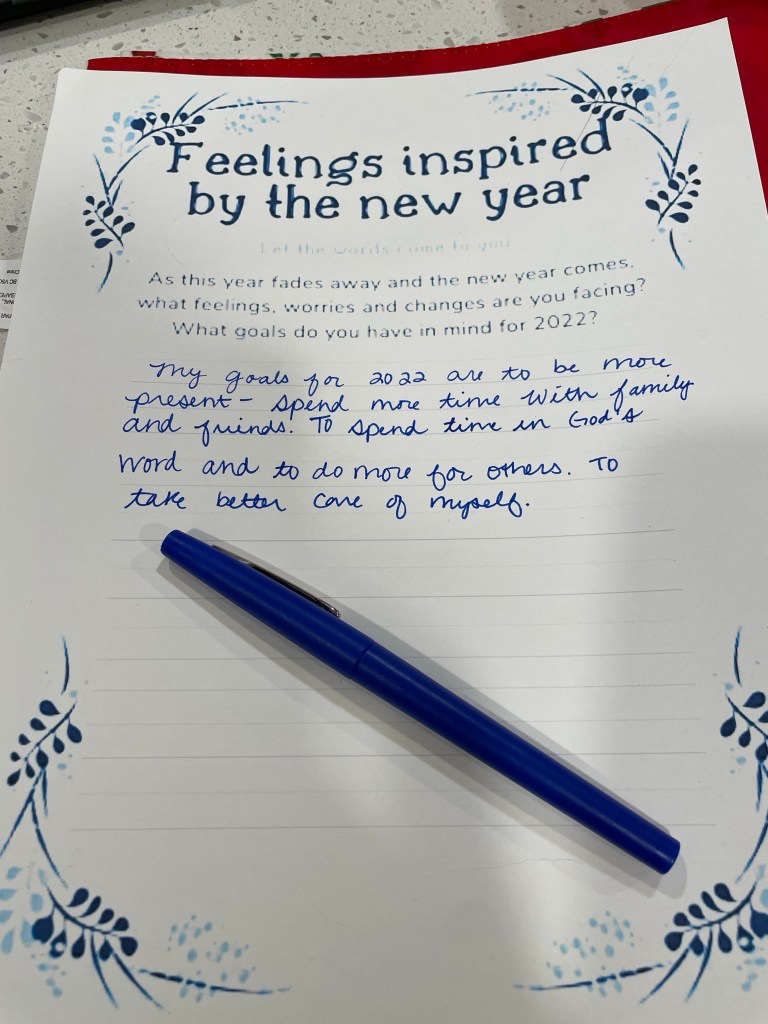 Feelings inspired
by the new year
Let the words come to you
As this year fades away and the new year comes,
what feelings, worries and changes are you facing?
What goals do you have in mind for 2022?
My goals for 2022 are to be more
present - spend more time with family
and friends. To spend time in God's
word and to do more for others. To
take better care of myself.